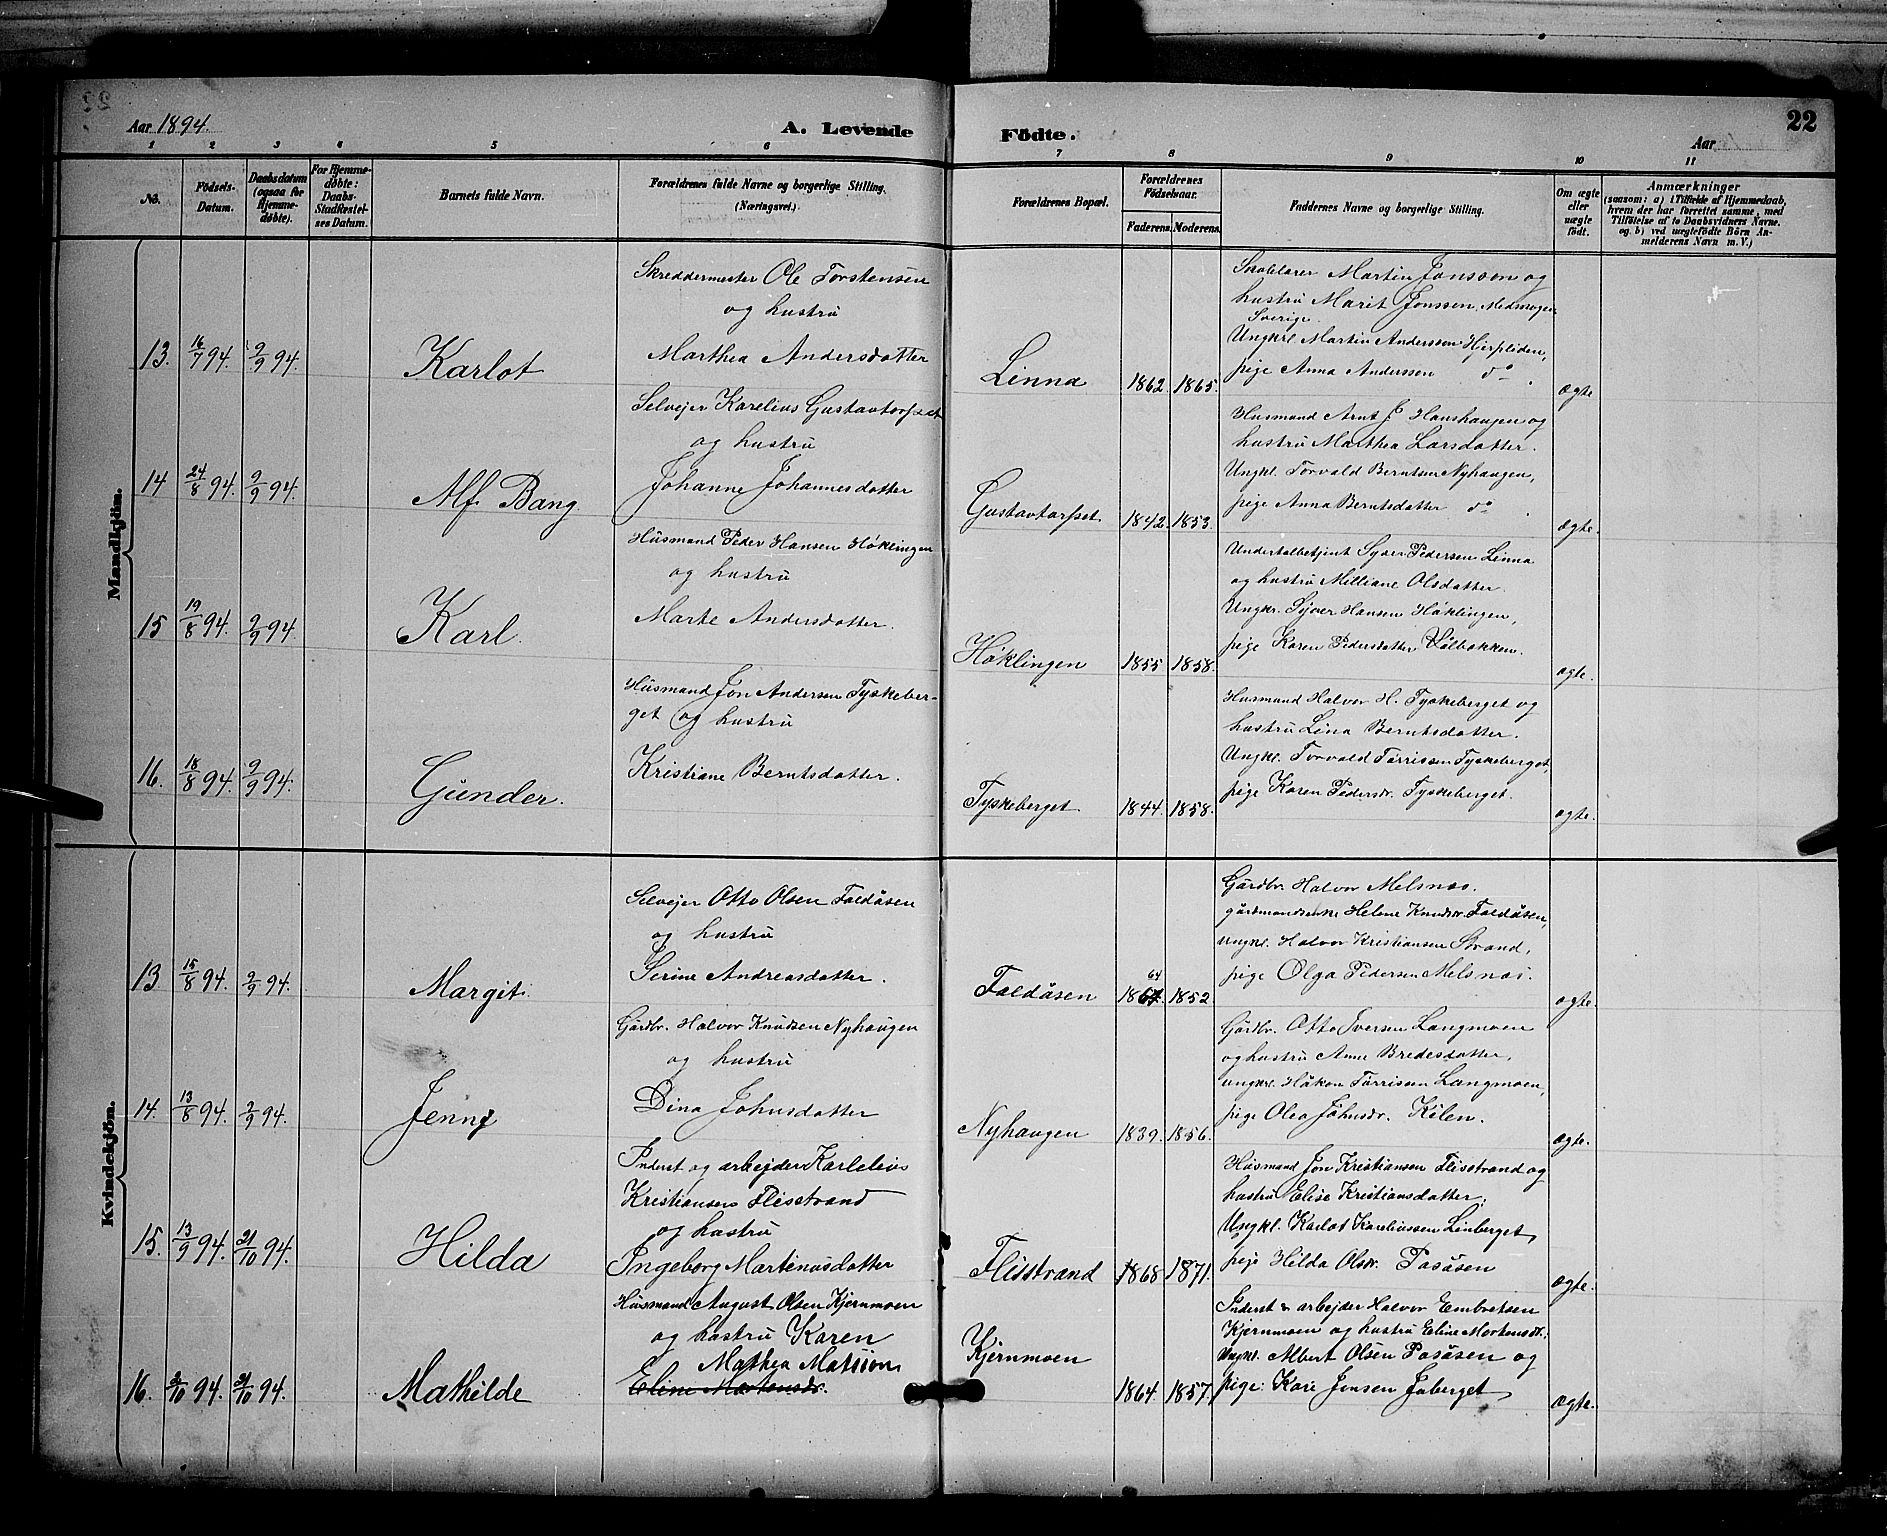 22
Aar 1894.
A. Levende Födte.
Aar
1 2 3 4 5 6 7 8 9 10 11
No.
Födsels-Datum.
Daabsdatum (ogsaa for Hjemmedöbte).
For Hjemmedöbte: Daabs-Stadfæstelses Datum.
Barnets fulde Navn.
Forældrenes fulde Navne og borgerlige Stilling.
(Næringsvei.)
Forældrenes Bopæl.
Forældrenes Födselsaar.
Faderens. Moderens.
Faddernes Navne og borgerlige Stilling.
Om ægte eller uægte födt.
Anmærkninger
(saasom: a) i Tilfælde af Hjemmedaab, hvem der har forrettet samme, med Tilföielse af to Daabsvidners Navne, og b) ved uægtefödte Börn Anmelderens Navn m. V.)
Mandkjön.
13. 16/7 94. 9/9 94. Karlot
Skreddermester Ole Torstensen
og hustru
Marthea Andersdatter
Linna 1862. 1865.
Skolelærer Martin Jonssen og
hustru Marit Jonssen
Sverige.
Ungkrl. Martin Anderssen
pige Anna Anderssen do.
ægte
14 24/8 94. 9/9 94. Alf Bang
Selvejer Karelius Gustavtorpet
og hustru
Johanne Johannesdatter
Gustavtorpet 1842. 1853.
Husmand Arnt J. Hanshaugen og
hustru Marthea Larsdatter.
Ungkl. Torvald Berntsen Nyhaugen,
pige Anna Berntsdatter do.
ægte.
15 19/8 94. 9/9 94 Karl.
Husmand Peder Hansen Høklingen
og hustru
Marte Andersdatter.
Høklingen 1855 1858.
Syver Pedersen Linna
og hustru Milliane Olsdatter.
Ungkr. Sjver Hansen Høklingen,
pige Karen Pedersdatter Vålbakken.
ægte.
16. 18/8 94. 9/9 94. Gunder.
Husmand Jon Andersen Tyskeber-
get og hustru
Kristiane Berntsdatter.
Tyskeberget 1844. 1858.
Husmand Halvor H. Tyskeberget og
hustru Lina Berntsdatter.
Ungkl. Torvald Tørrissen Tyskeberget,
pige Karen Pedersdr. Tyskeberget.
ægte.
Kvindekjön.
13 15/8 94. 9/9 94. Margit.
Selvejer Otto Olsen Faldåsen
og hustru
Serine Andreasdatter.
Faldåsen 64 1852
Gårdbr. Halvor Melsnæs.
gårdmandsenke Helene Knudsdr. Faldåsen,
ungkl. Halvor Kristiansen Strand,
pige Olga Pedersen Melsnæs.
ægte.
14. 13/8 94. 9/9 94. Jenny
Gårdbr. Halvor Knudsen Nyhaugen
og hustru
Dina Johnsdatter
Nyhaugen 1839. 1856.
Gårdbr. Otto Iversen Langmoen
og hustru Anne Bredesdatter,
ungkl. Håkon Tørrisen Langmoen,
pige Olea Johnsdr. Kilen.
ægte.
15. 13/9 94. 21/10 94. Hilda
Inderst og arbejder Karlelius
Kristiansen Flisstrand
og hustru
Ingeborg Martinusdatter
Flisstrand 1868 1871.
Husmand Jon Kristiansen Flisstrand og
hustru Elise Kristiansdatter.
Ungkl. Karlot Kareliussen Linberget,
pige Hilda Olsdr. Posåsen
ægte.
16. 94. 21/10 94. Mathilde
Husmand August Olsen Kjernmoen
og hustru Karen
Mathea
Eline Mortensdr.
Kjernmoen 1864. 1857.
Inderst & arbejder Halvor Embretsen
Kjernmoen og hustru Eline Mortensdr.
Ungkl. Albert Olsen Posåsen og
pige: Kari Jonsen Joberget
ægte.